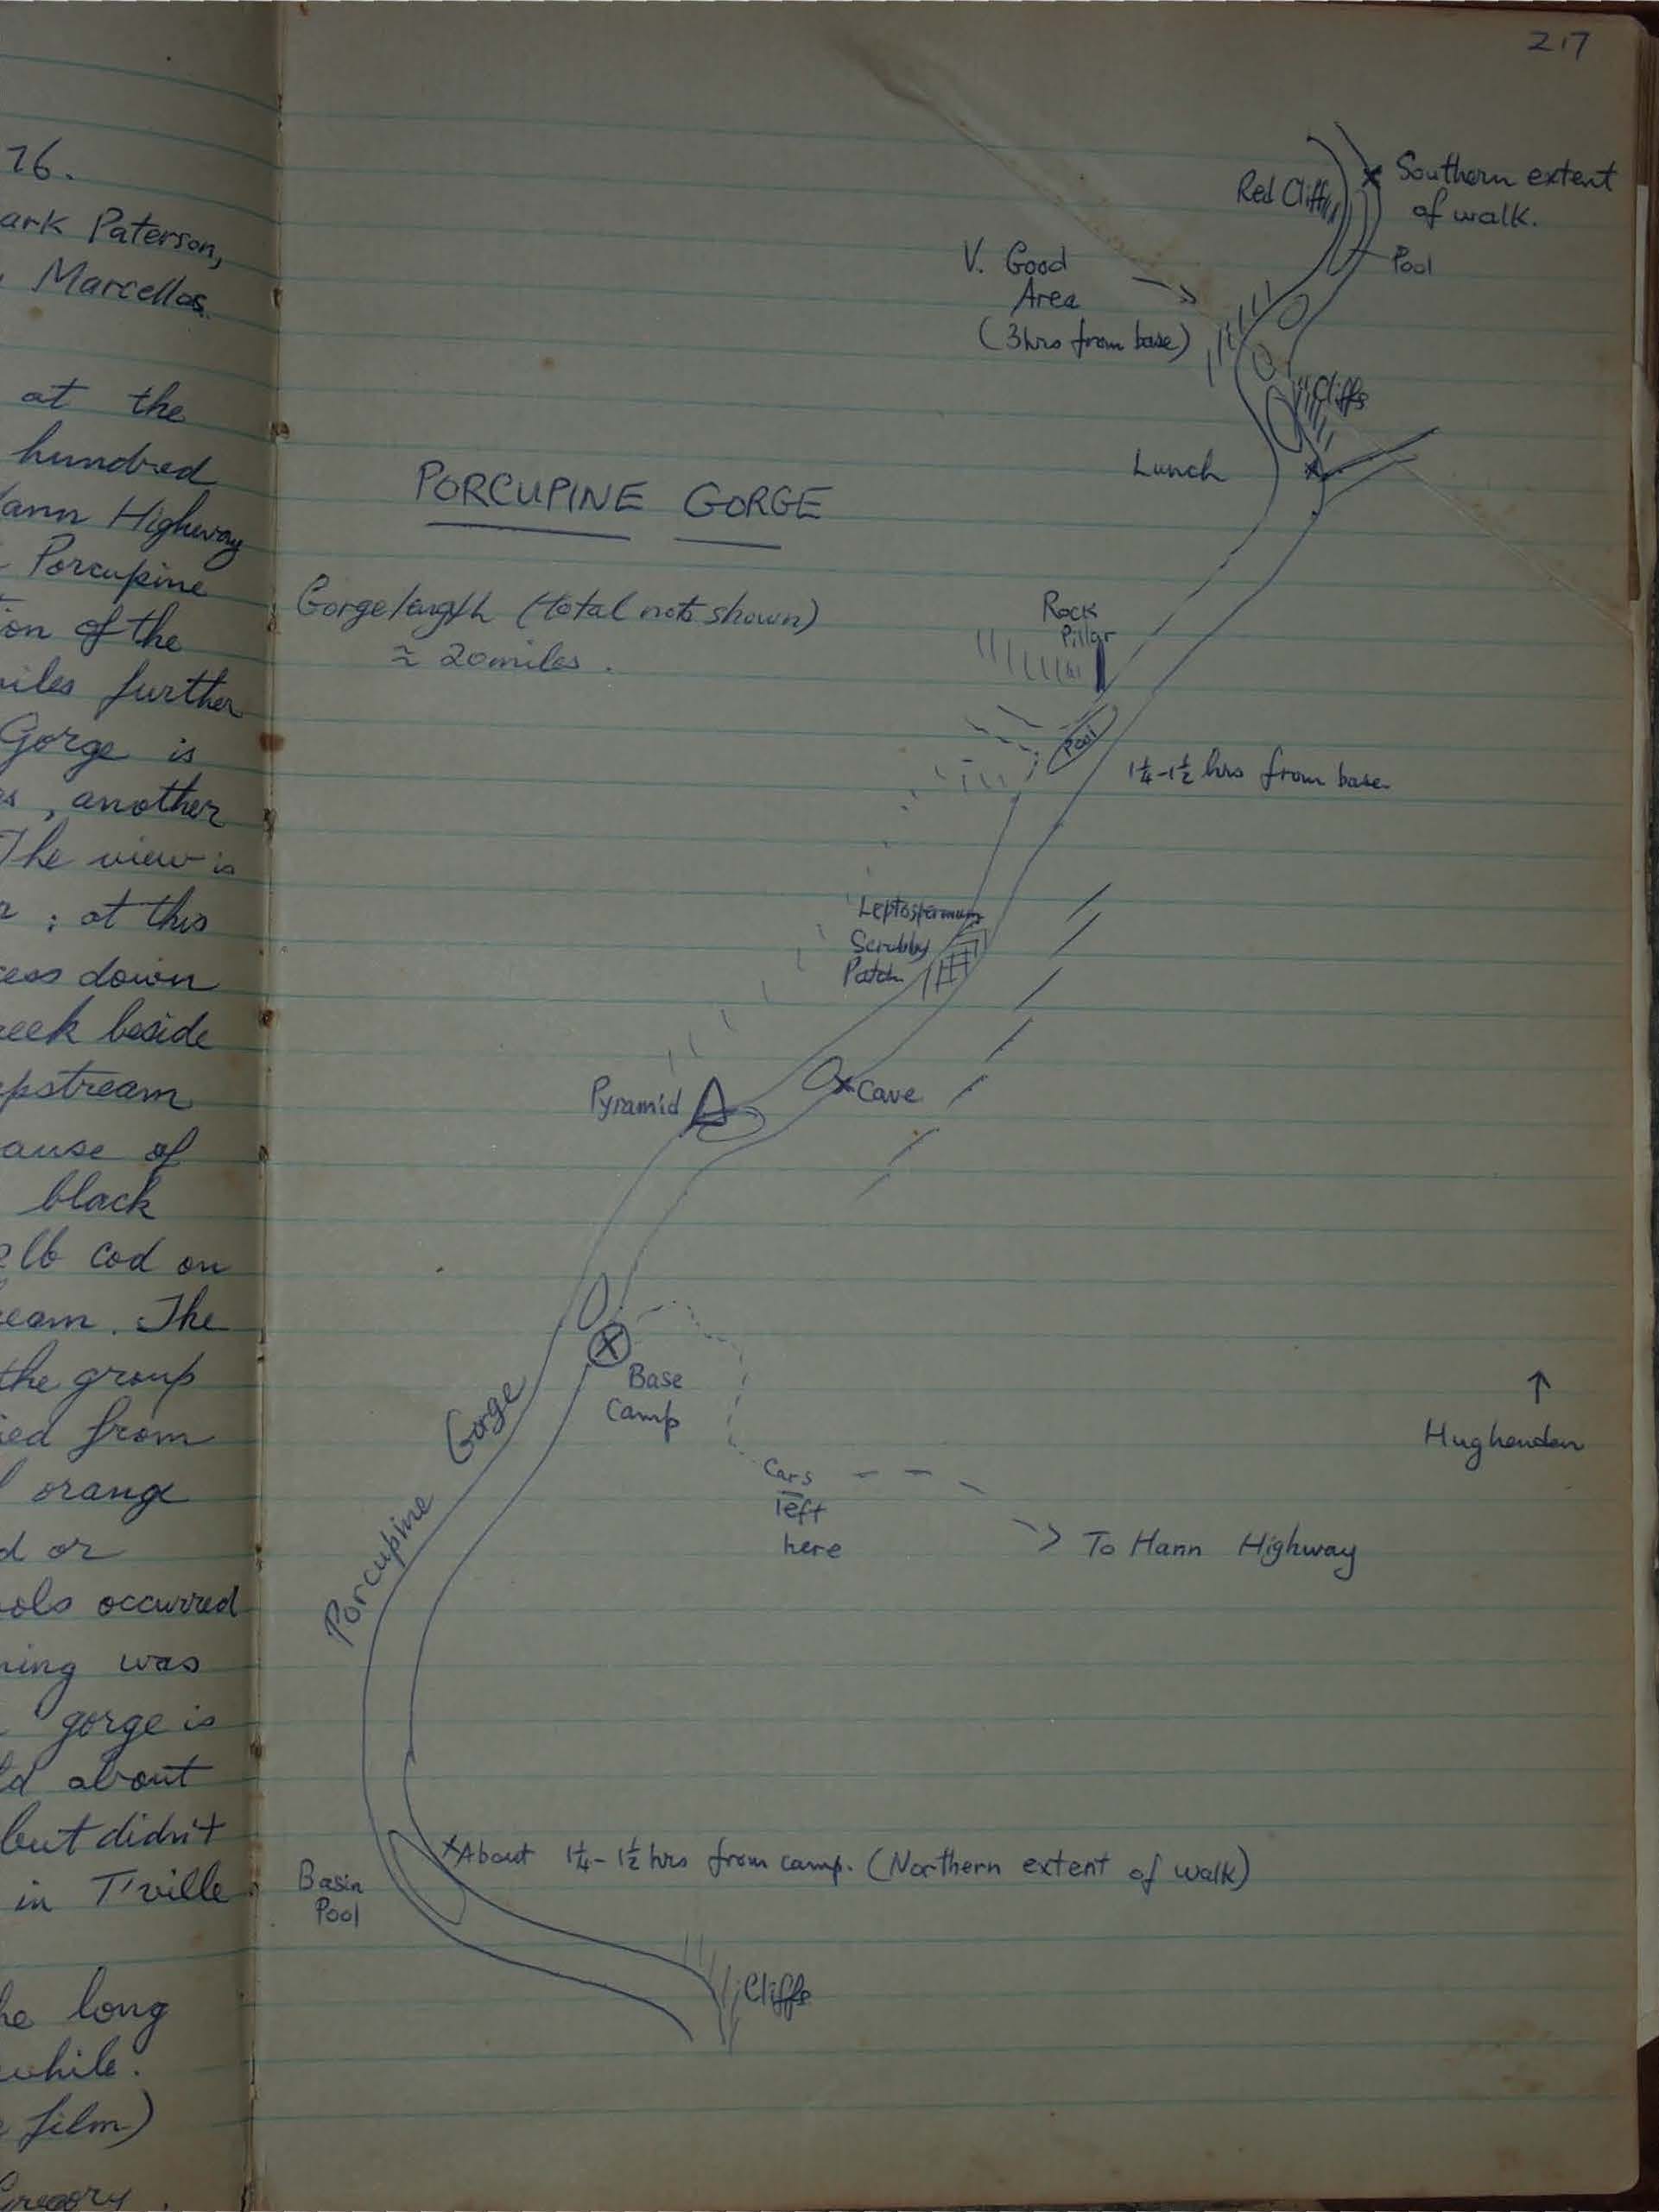 76.
ark Paterson,
Marcellos.
at the
hundred
ann Highway
Porcupine
on of the
iles further
Gorge is
s, another
The view is
r ; at this
ess down
reek beside
pstream
ause of
black
lb cod on
eam. The
the group
ied from
orange
d or
ols occurred
ning was
gorge is
ld about
but didn't
in T'ville
he long
while.
film)
Gregory.
217
Southern extent
of walk.
Red Cliffs
Pool
V. Good
Area
(3hrs from base)
Cliffs
Lunch
PORCUPINE GORGE
Gorge length (total not shown)
≈ 20 miles.
Rock
Pillar
Pool
1¼-1½ hrs from base.
Leptospermum
Scrubby
Patch
Pyramid
Cave
Base
Camp
Porcupine Gorge
↑
Hughenden
Cars
left
here
To Hann Highway
About 1¼-1½ hrs from camp. (Northern extent of walk)
Basin
Pool
Cliffs